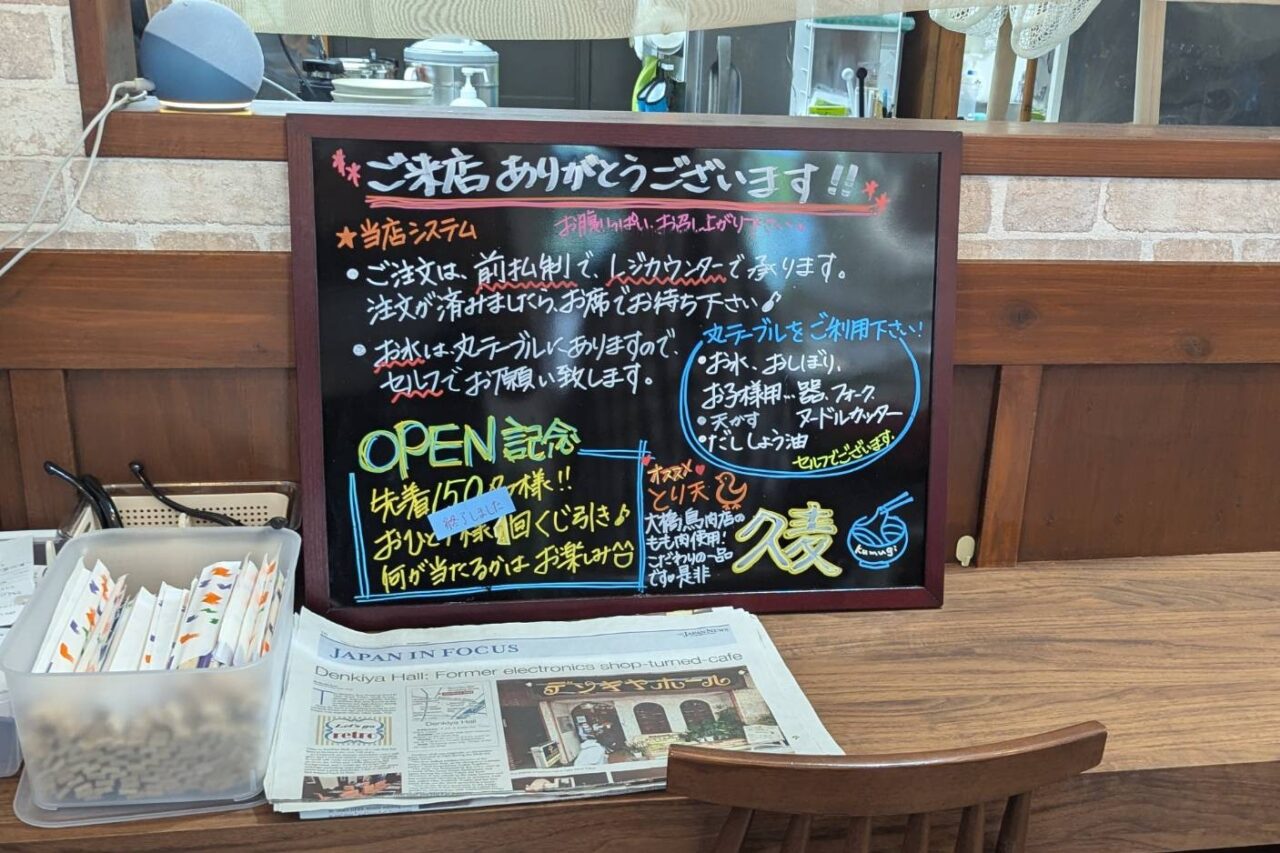 ご来店ありがとうございます!!
お腹いっぱい、お召し上がり下さい♪
★当店システム
・ご注文は、前払制で、レジカウンターで承ります。
注文が済みましたら、お席でお待ち下さい♪
・お水は、丸テーブルにありますので、
セルフでお願い致します。
丸テーブルをご利用下さい!
・お水、おしぼり、
お子様用…器、フォーク、
ヌードルカッター
・天かす
・だししょう油
セルフでございます。
OPEN記念
先着150 様!!
終了しました
おひとり様1回くじ引き♪
何が当たるかはお楽しみ
オススメ
とり天
大橋鳥肉店の
もも肉使用!
こだわりの一品
です。是非
久麦
kumugi
JAPAN IN FOCUS
THE JAPAN NEWS
Denkiya Hall: Former electronics shop-turned-cafe
Denkiya Hall
Let's go
retro
デンキヤホール